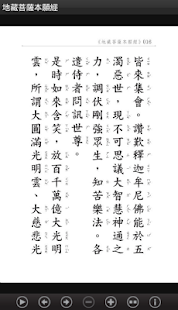 地藏菩薩本願經
皆來集會。讚歎釋迦牟尼佛能於五
濁惡世,現不可思議大智慧神通之
力,調伏剛彊眾生,知苦樂法。各
遣侍者問訊世尊。
是時如來含笑,放百千萬億大光明
雲,所謂大圓滿光明雲、大慈悲光